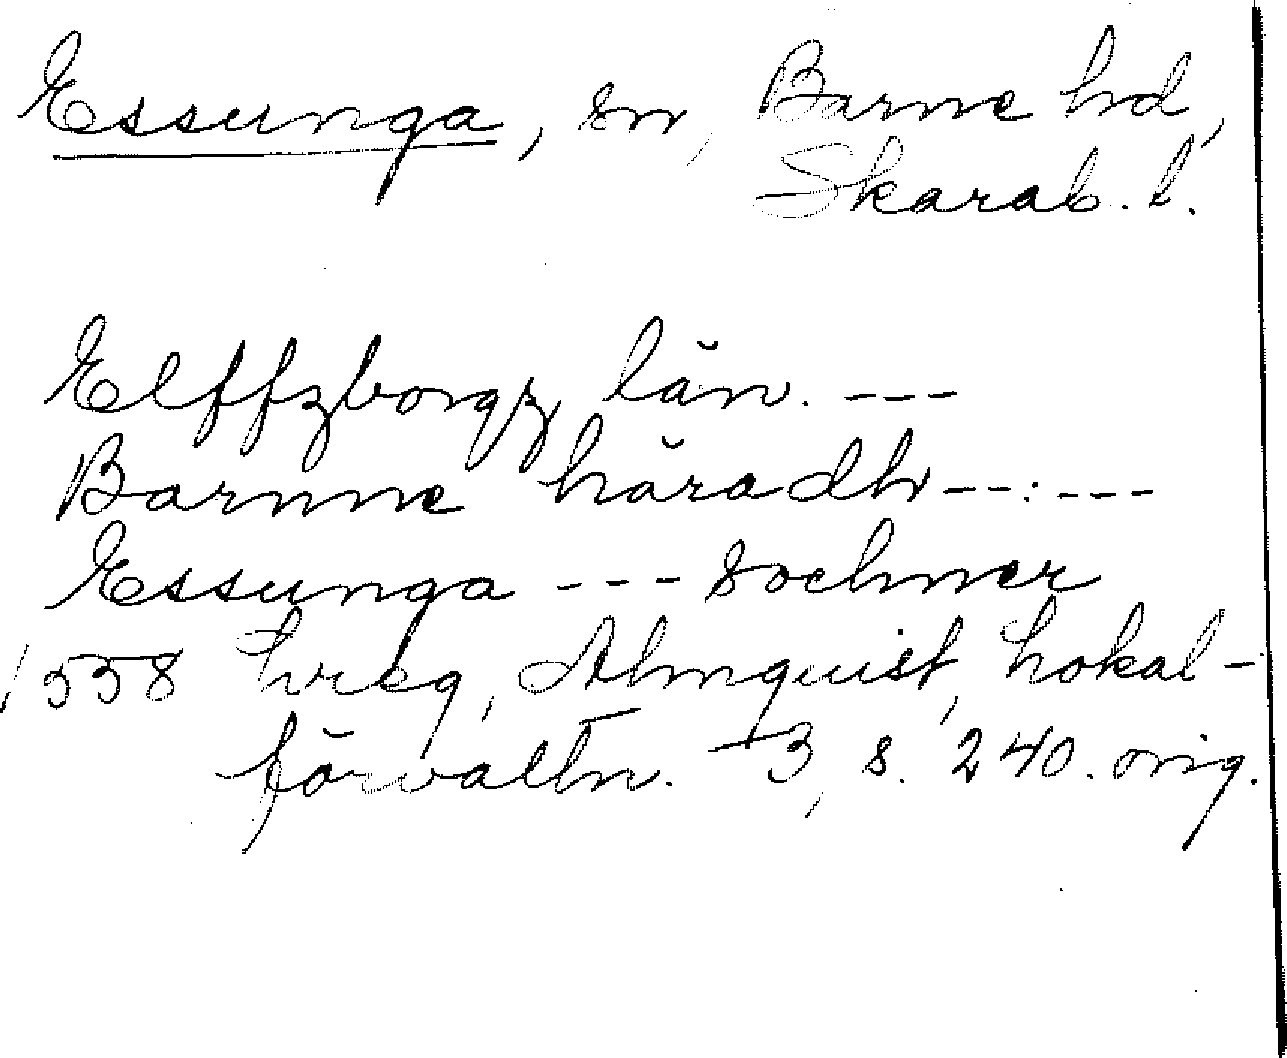 Essunga, sn, Barne hd,
Skarab. l.
Elffzborgz län. ---
Barnne häradh --:---
Essunga --- sochner
1558 hreg, Almquist, Lokal-
förvaltn. 3, s. 240. orig.